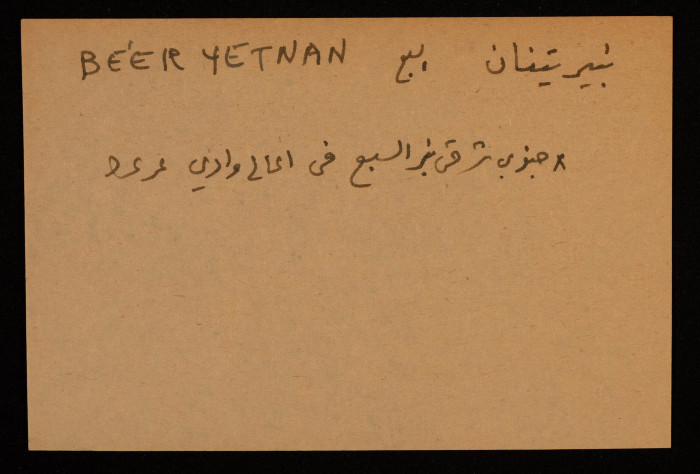 BE'ER YETNAN السبع بئير يتنان
* جنوبي شرقي بئر السبع في اعالي وادي عرعرة